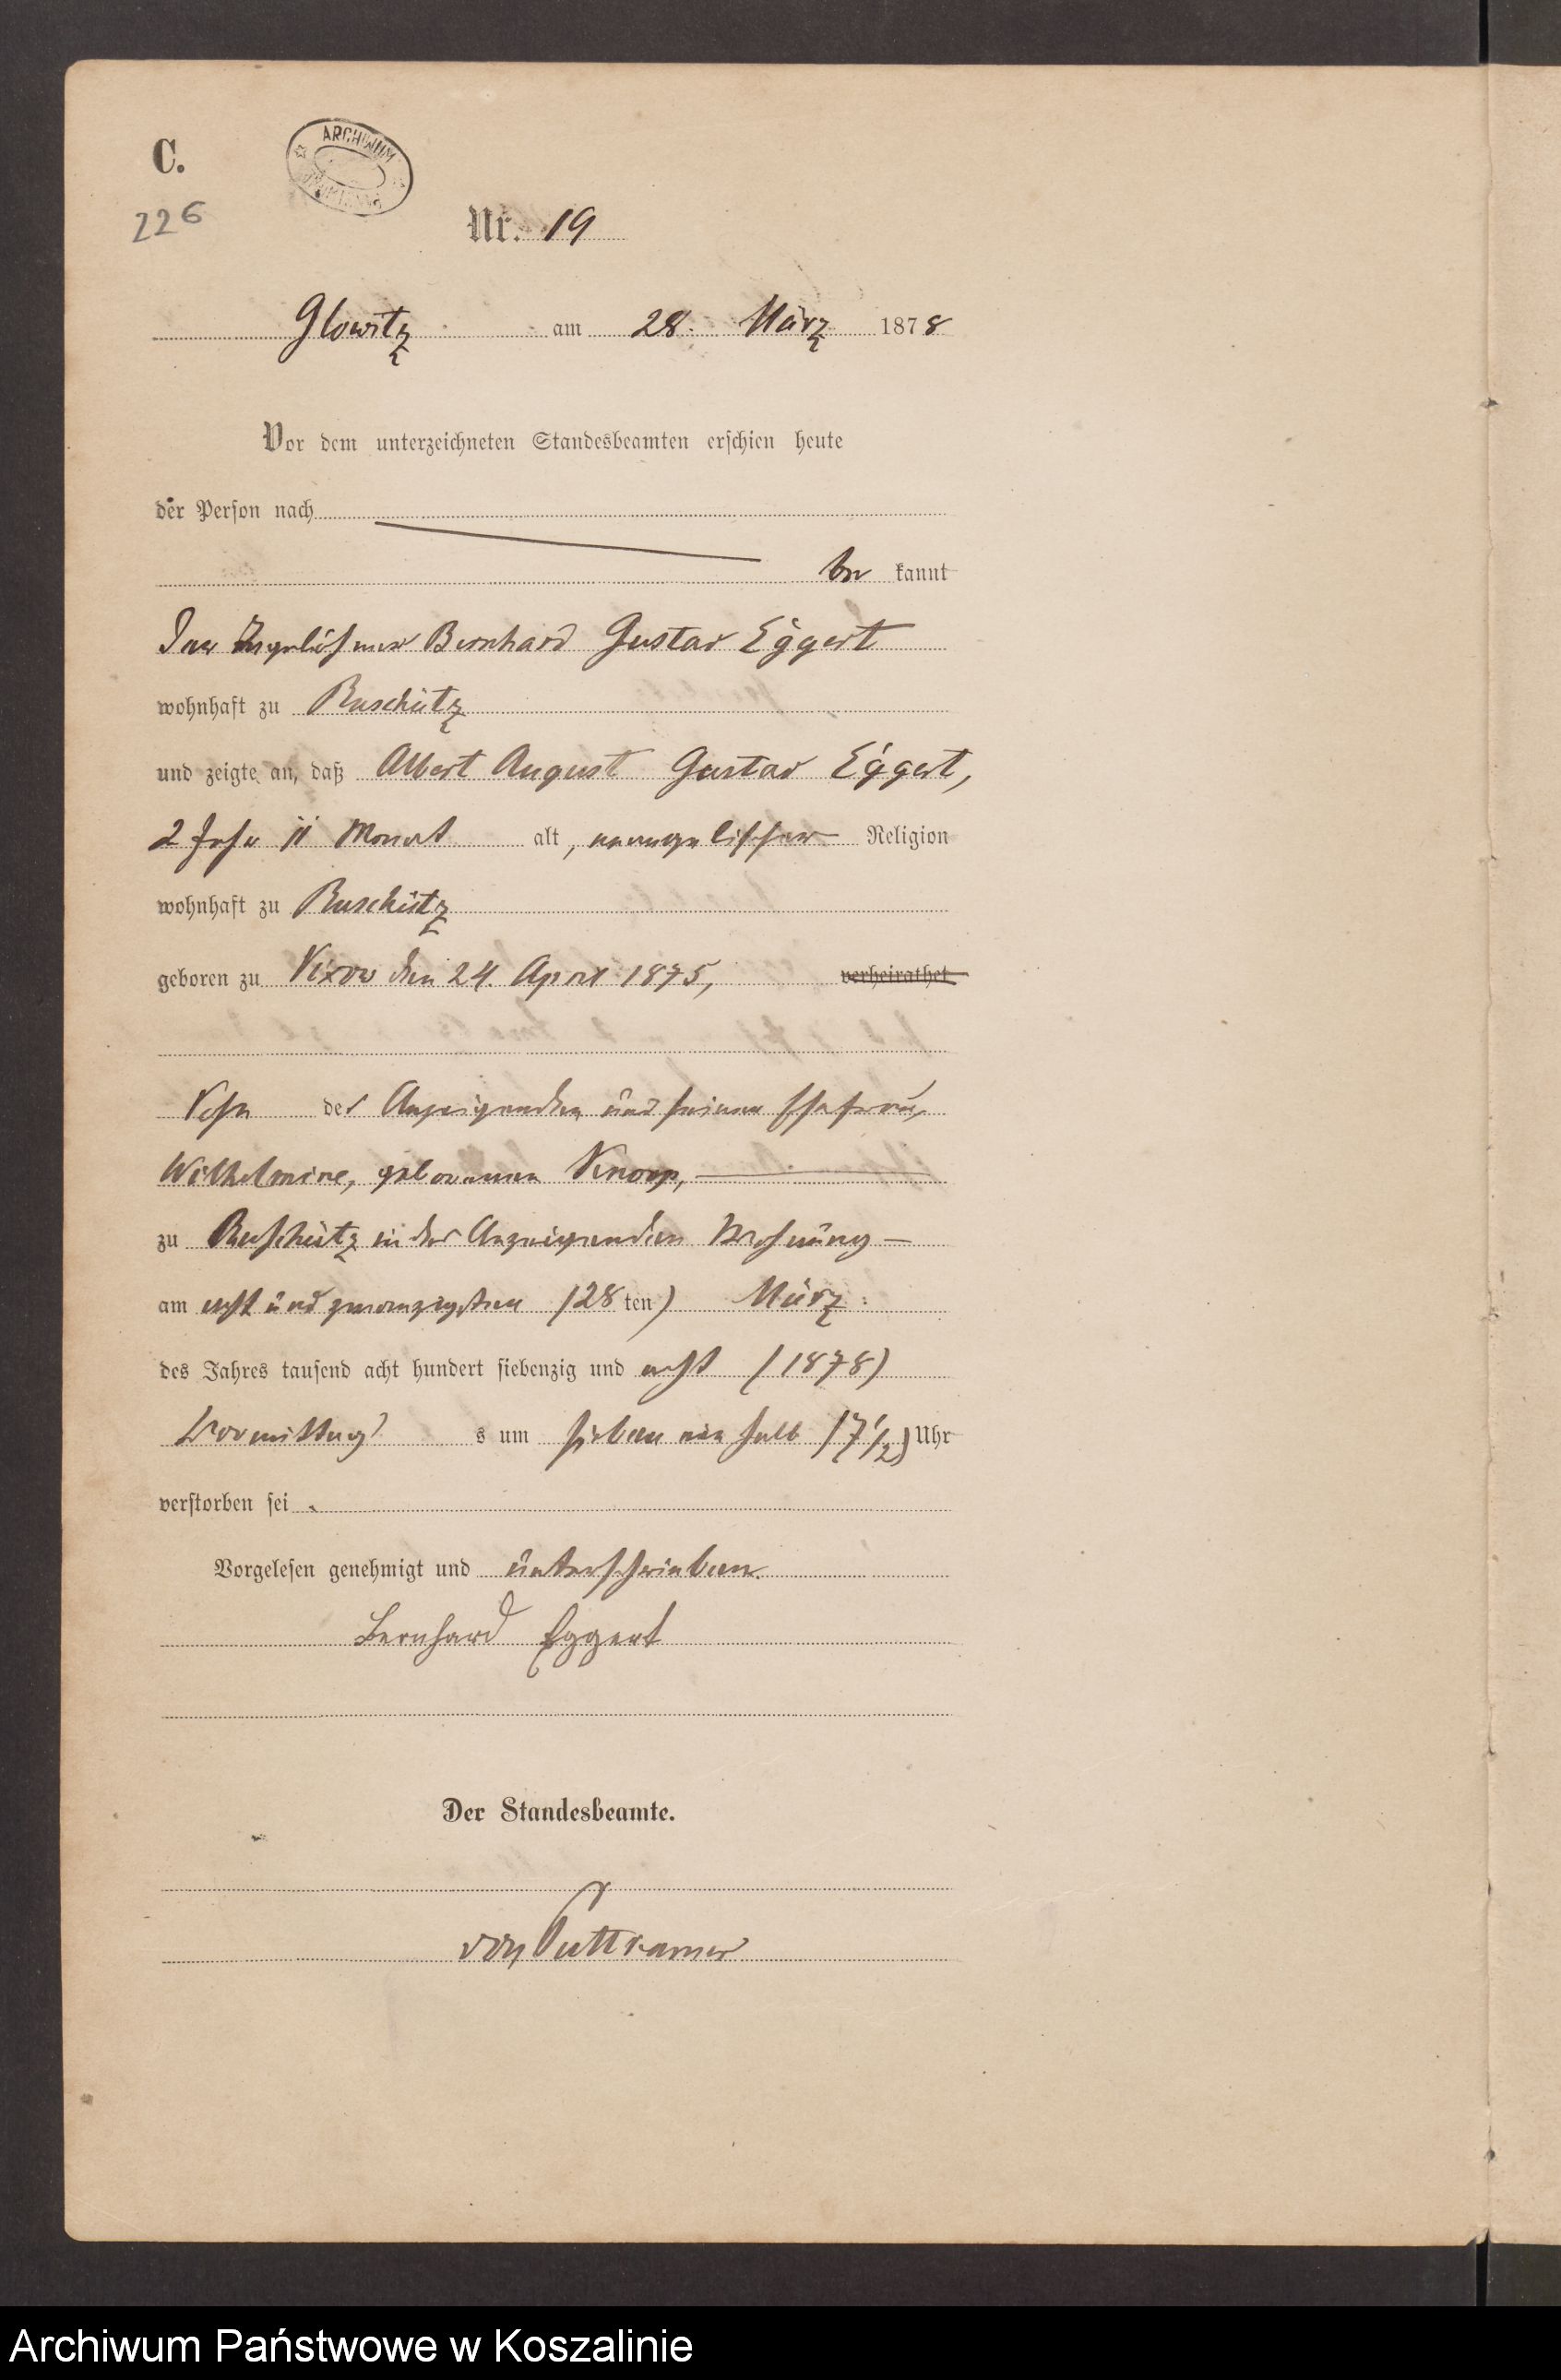 C.
ARCHIWUM
226
Nr. 19
Glowitz am 28. März 1878
Vor dem unterzeichneten Standesbeamten erschien heute
der Person nach
be kannt
der Tagelöhner Bernhard Gustav Eggert
wohnhaft zu Ruschütz
und zeigte an, daß Albert August Gustav Eggert,
2 Jahr 11 Monat alt, evangelischer Religion
wohnhaft zu Ruschütz
geboren zu Vixow den 24. April 1875, verheirathet
Sohn des Anzeigenden und seiner Ehefrau,
Wilhelmine, geborenen Knoop,
zu Ruschütz in der Anzeigenden Wohnung
am acht und zwanzigsten (28 ten) März
des Jahres tausend acht hundert siebenzig und acht (1878)
Vormittag s um sieben ein halb (7 1/2) Uhr
verstorben sei.
Vorgelesen genehmigt und unterschrieben.
Bernhard Eggert
Der Standesbeamte.
von Puttkamer
Archiwum Państwowe w Koszalinie